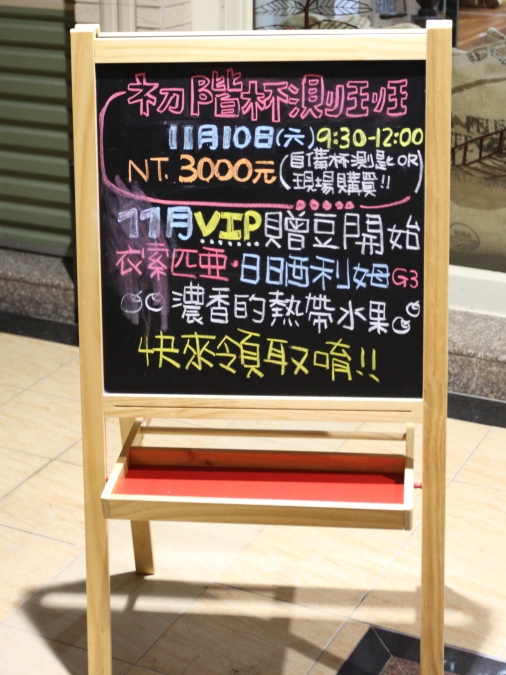 初階杯測班
11月10日(六) 9:30-12:00
NT. 3000元 (自備杯測匙 OR
現場購買!!)
11月VIP贈豆開始
衣索匹亞·日晒利姆G3
濃香的熱帶水果
快來領取唷!!